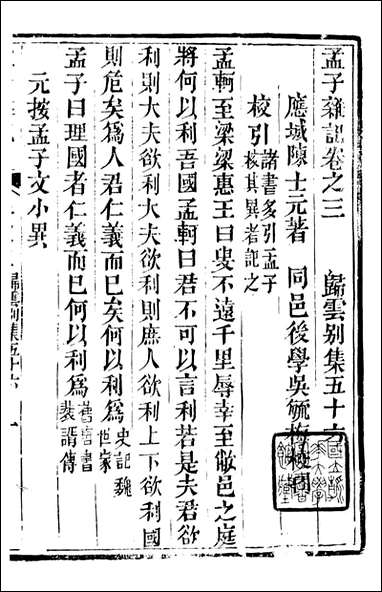 孟子雜記卷之三　歸雲別集五十六
應城陳士元著　同邑後學吳毓梅校
校引諸書多引孟子
校其異者記之
孟軻至梁梁惠王曰叟不遠千里辱幸至敝邑之庭
將何以利吾國孟軻曰君不可以言利若是夫君欲
利則大夫欲利大夫欲利則庶人欲利上下欲利國
則危矣爲人君仁義而已矣何以利爲史記魏
世家
孟子曰理國者仁義而已何以利爲舊唐書
裴諝傳
元按孟子文小異
歸雲別集五十六　一